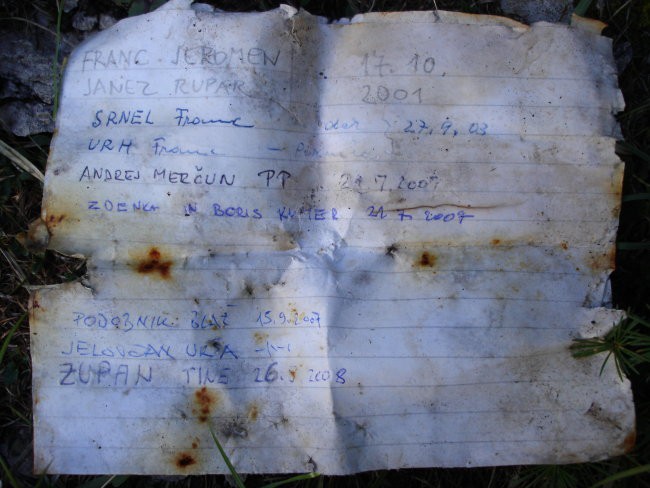 FRANC JEROMEN 17. 10.
JANEZ RUPAR 2001
SRNEL Franc 27. 9. 03
URH Franc -
ANDREJ MERČUN PP 21 7. 2007
ZDENKA IN BORIS 21 7 2007
PODOBNIK BLAŽ 15.9.2007
JELOVČAN -11-
ŽUPAN TINE 26. 2008